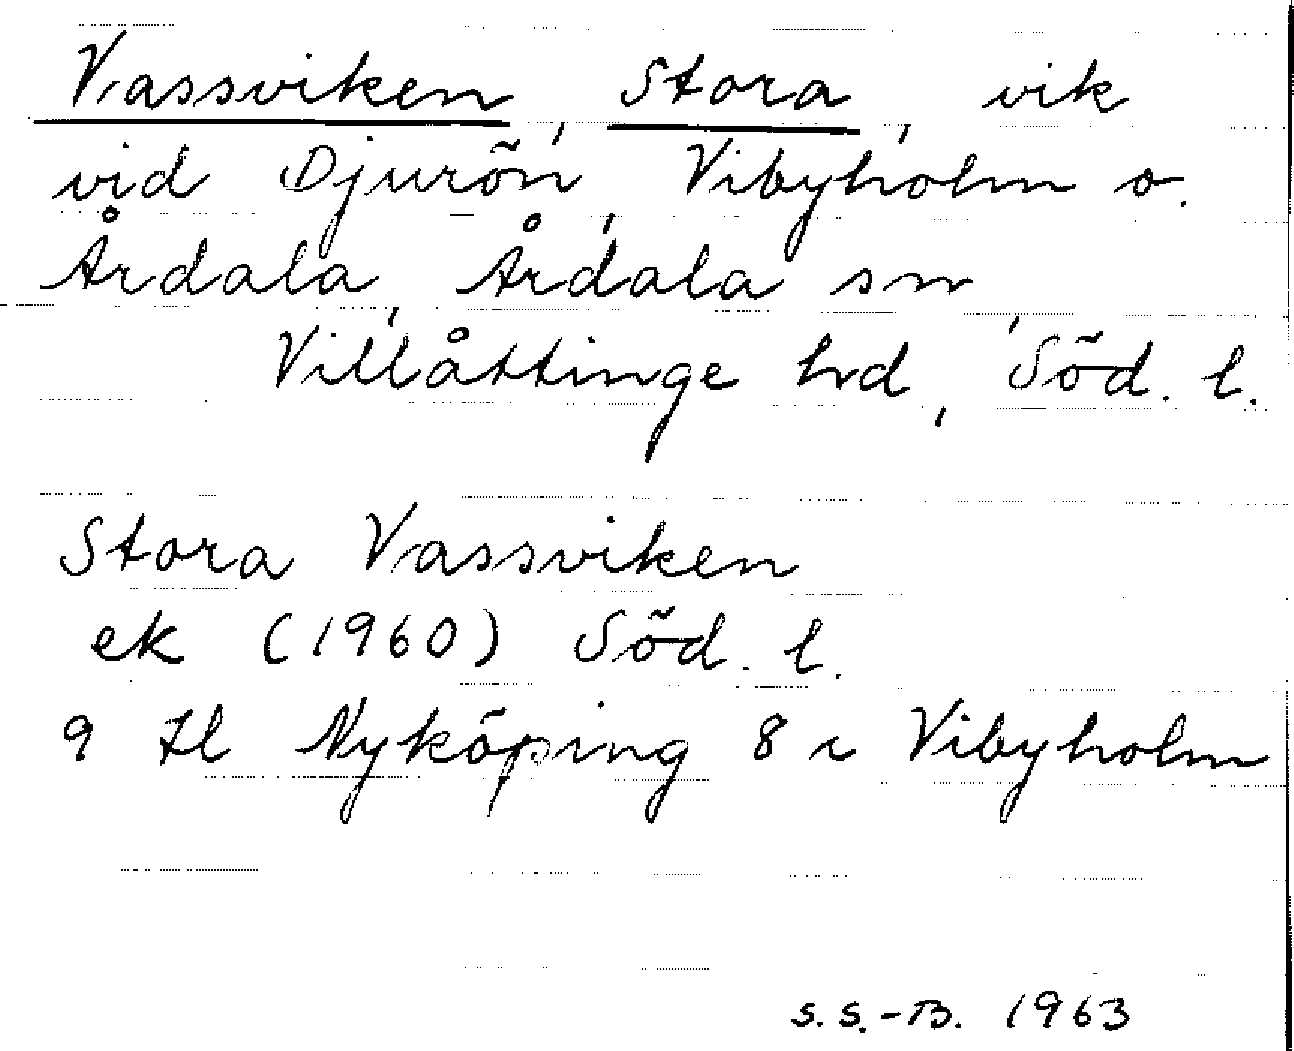 Vassviken, Stora, vik
vid Djurön, Vibyholm o.
Årdala, Årdala sn,
Villåttinge hrd, Söd. l.
Stora Vassviken
ek (1960) Söd. l.
9 tl Nyköping 8 i Vibyholm
S. S.-B. 1963